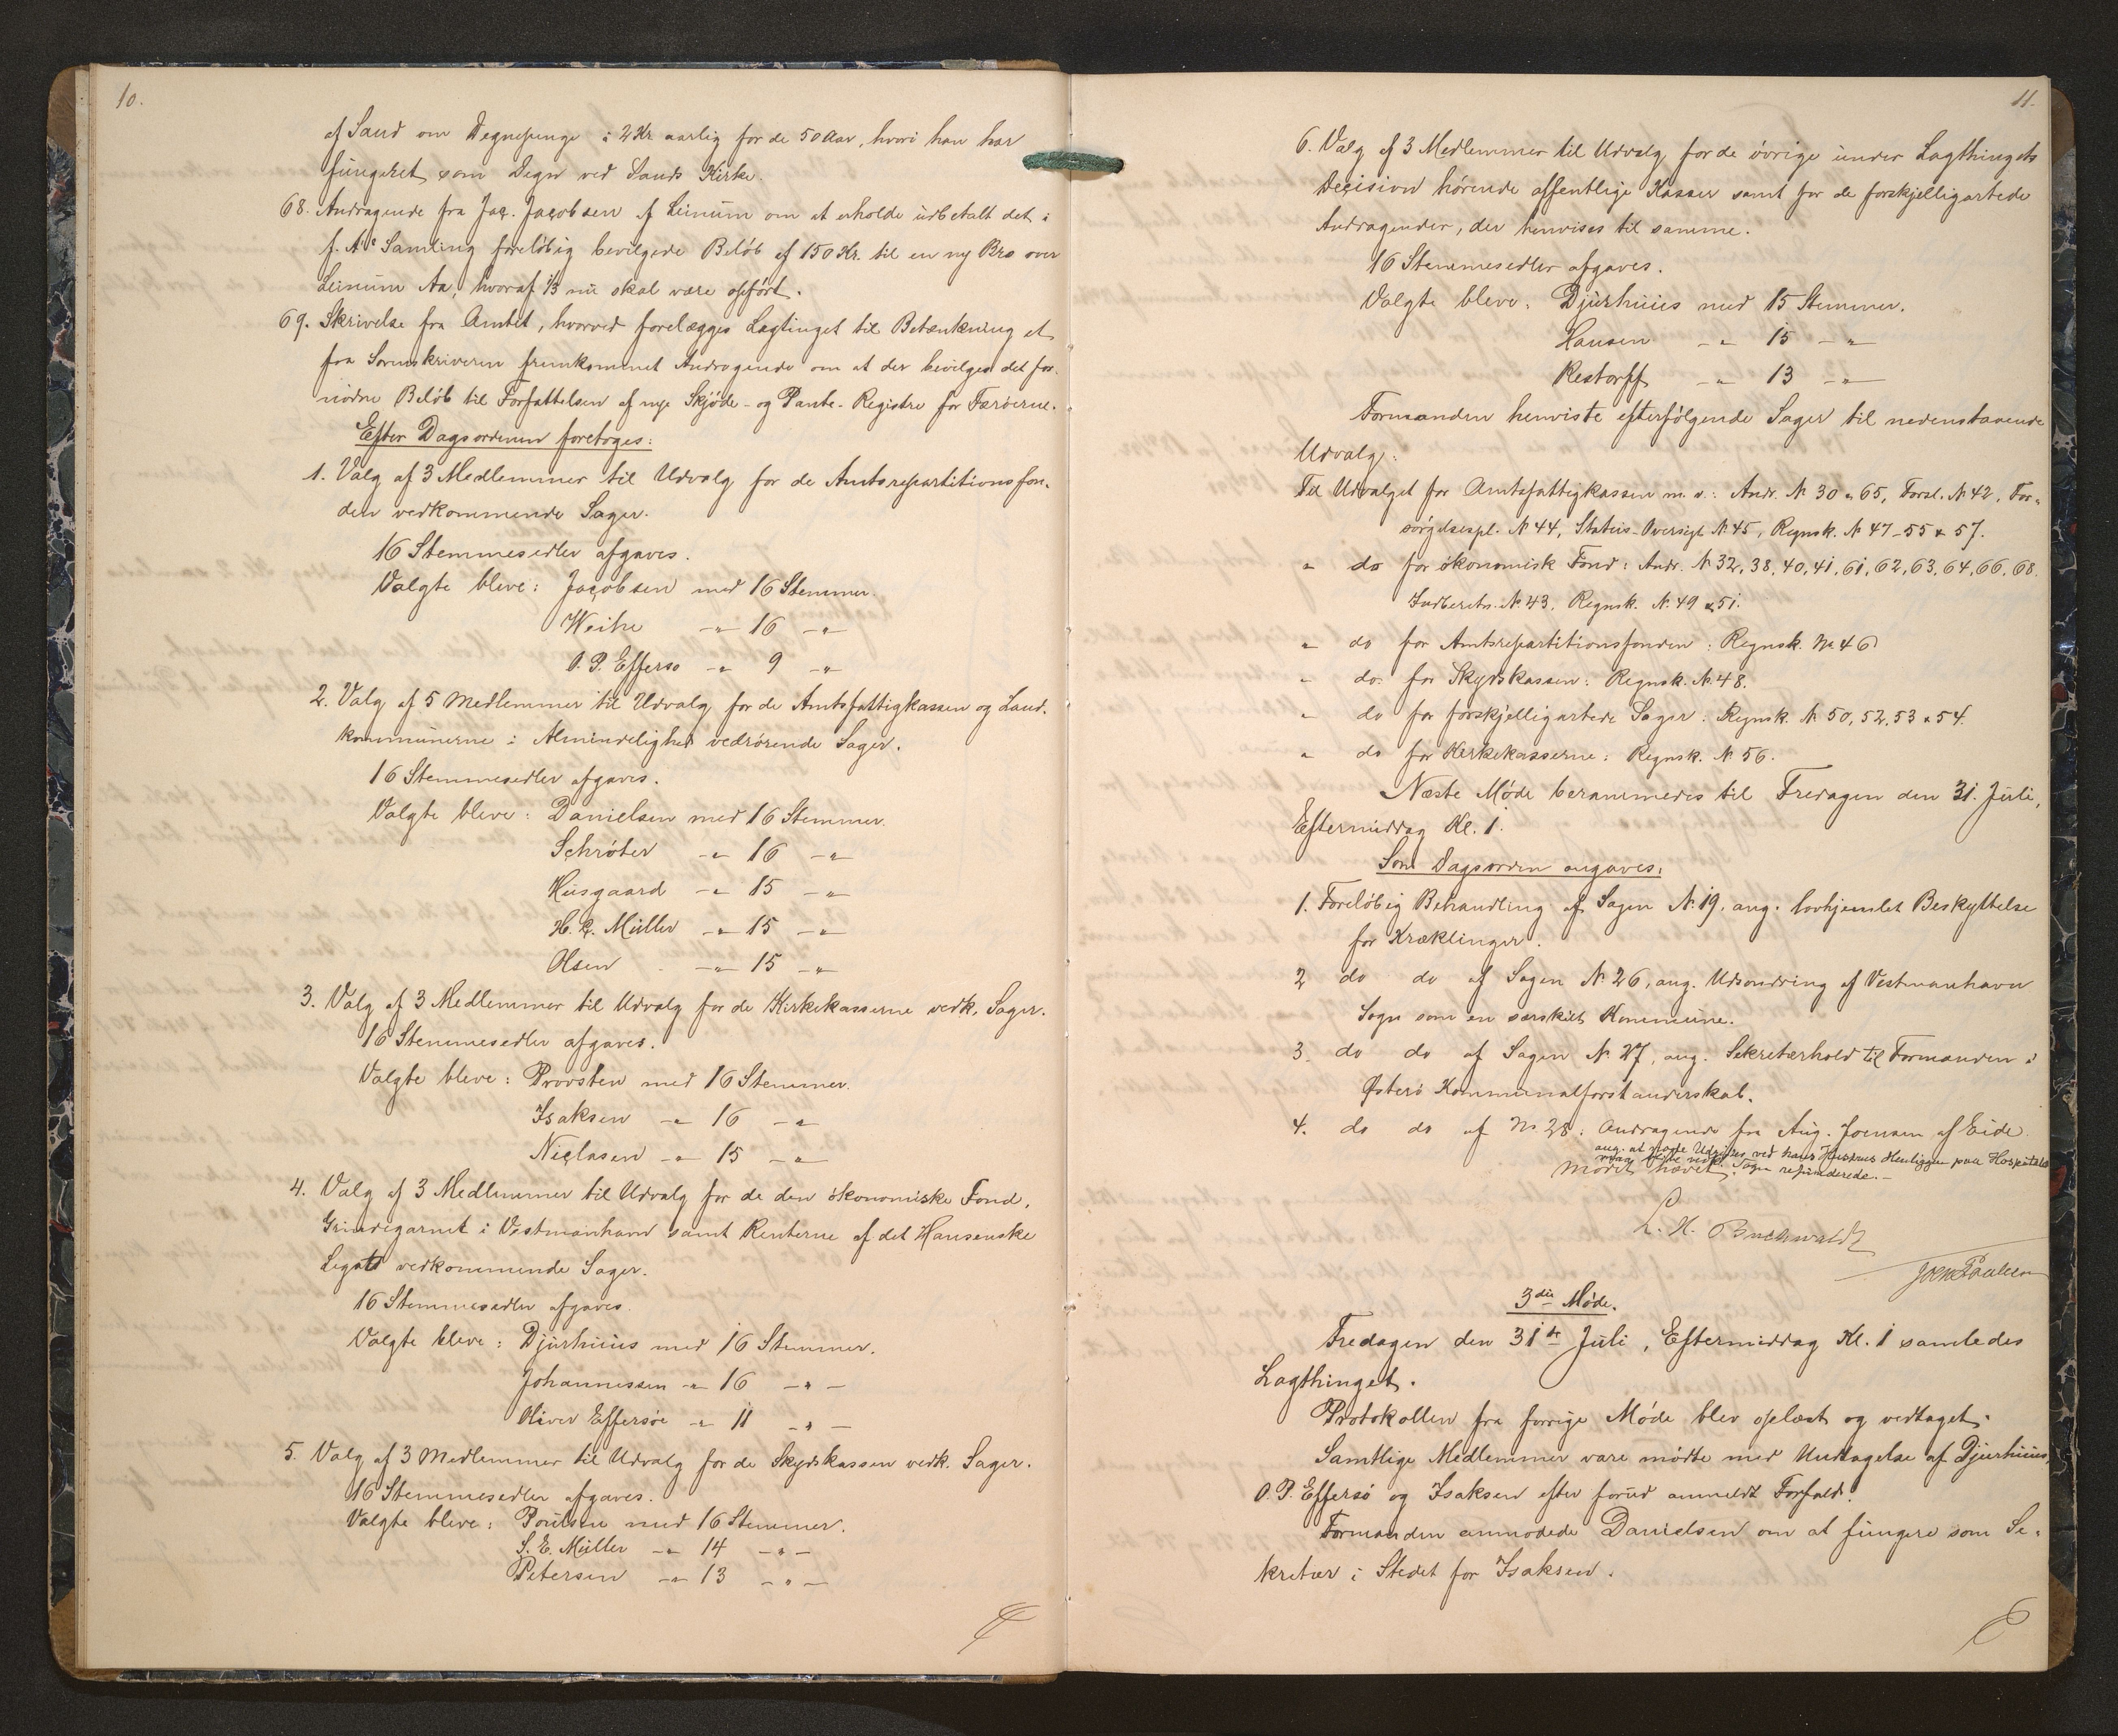 10.
af Sand om Degnepenge : 2 Kr. aarlig for de 50 Aar, hvori han har
fungeret som Degn ved Sands Kirke.
68. Andragende fra Jac. Jacobsen af Leinum om at erholde udbetalt det i
f. A's Samling foreløbig bevilgede Beløb af 150 Kr. til en ny Bro over
Leinum Aa, hvoraf 1/3 nu skal være opført.
69. Skrivelse fra Amtet, hvorved forelægges Lagtinget til Betænkning et
fra Sorenskriveren fremkommet Andragende om at der bevilges det for-
nødne Beløb til Forfattelsen af nye Skjøde- og Pante-Registre for Færøerne.
Efter Dagsordenen foretoges:
1. Valg af 3 Medlemmer til Udvalg for de Amtsrepartitionsfon-
den vedkommende Sager.
16 Stemmesedler afgaves.
Valgte bleve: Jacobsen med 16 Stemmer.
Weihe -"- 16 -"-
O. P. Effersø -"- 9 -"-
2. Valg af 5 Medlemmer til Udvalg for de Amtsfattigkassen og Land-
kommunerne i Almindelighed vedrørende Sager.
16 Stemmesedler afgaves.
Valgte bleve: Danielsen med 16 Stemmer.
Schrøter -"- 16 -"-
Husgaard -"- 15 -"-
H. C. Müller -"- 15 -"-
Olsen -"- 15 -"-
3. Valg af 3 Medlemmer til Udvalg for de Kirkekasserne vedk. Sager.
16 Stemmesedler afgaves.
Valgte bleve: Provsten med 16 Stemmer.
Isaksen -"- 16 -"-
Niclasen -"- 15 -"-
4. Valg af 3 Medlemmer til Udvalg for de den økonomiske Fond,
Grindegarnet i Vestmanhavn samt Renterne af det Hansenske
Legat vedkommende Sager.
16 Stemmesedler afgaves.
Valgte bleve: Djurhuus med 16 Stemmer.
Johannesen -"- 16 -"-
Oliver Effersøe -"- 11 -"-
5. Valg af 3 Medlemmer til Udvalg for de Skydskassen vedk. Sager.
16 Stemmesedler afgaves.
Valgte bleve: Poulsen med 16 Stemmer.
S. E. Müller -"- 14 -"-
Petersen -"- 13 -"-
11.
6. Valg af 3 Medlemmer til Udvalg for de øvrige under Lagthingets
Decision hørende offentlige Kasser samt for de forskjelligartede
Andragender, der henvises til samme.
16 Stemmesedler afgaves.
Valgte bleve: Djurhuus med 15 Stemmer.
Hansen -"- 15 -"-
Restorff -"- 13 -"-
Formanden henviste efterfølgende Sager til nedenstaaende
Udvalg:
Til Udvalget for Amtsfattigkassen m. v.: Andr. No 30 & 65, Forsl. No 42, For-
sørgelsespl. No 44, Status-Oversigt No 45, Regnsk. No 47-55 & 57.
" do for økonomisk Fond: Andr. No 32, 38, 40, 41, 61, 62, 63, 64, 66, 68.
Indberetn. No 43, Regnsk. No 49 & 51.
" do for Amtsrepartitionsfonden: Regnsk. No 46
" do for Skydskassen: Regnsk. No 48.
" do for forskjelligartede Sager: Regnsk. No 50, 52, 53 & 54.
" do for Kirkekasserne: Regnsk. No 56.
Næste Møde berammedes til Fredagen den 31. Juli,
Eftermiddag Kl. 1.
Som Dagsorden angaves:
1. Foreløbig Behandling af Sagen No 19, ang. lovhjemlet Beskyttelse
for Kræklinger.
2 do do af Sagen No 26, ang. Udsondring af Vestmanhavn
Sogn som en særskilt Kommune.
3. do do af Sagen No 27, ang. Sekretærhold til Formanden i
Østerø Kommunalforstanderskab.
4. do do af No 28: Andragende fra Aug. Joensen af Eide
ang. at nogle Udgifter ved hans Hustrues Henliggen paa Hospitalet
maa blive refunderede.-
Mødet hævet.
C. H. Buchwaldt
Joen Poulsen
3die Møde.
Fredagen den 31te Juli, Eftermiddag Kl. 1 samledes
Lagthinget.
Protokollen fra forrige Møde blev oplæst og vedtaget.
Samtlige Medlemmer vare mødte med Undtagelse af Djurhuus,
O. P. Effersø og Isaksen efter forud anmeldt Forfald.
Formanden anmodede Danielsen om at fungere som Se-
kretær i Stedet for Isaksen.